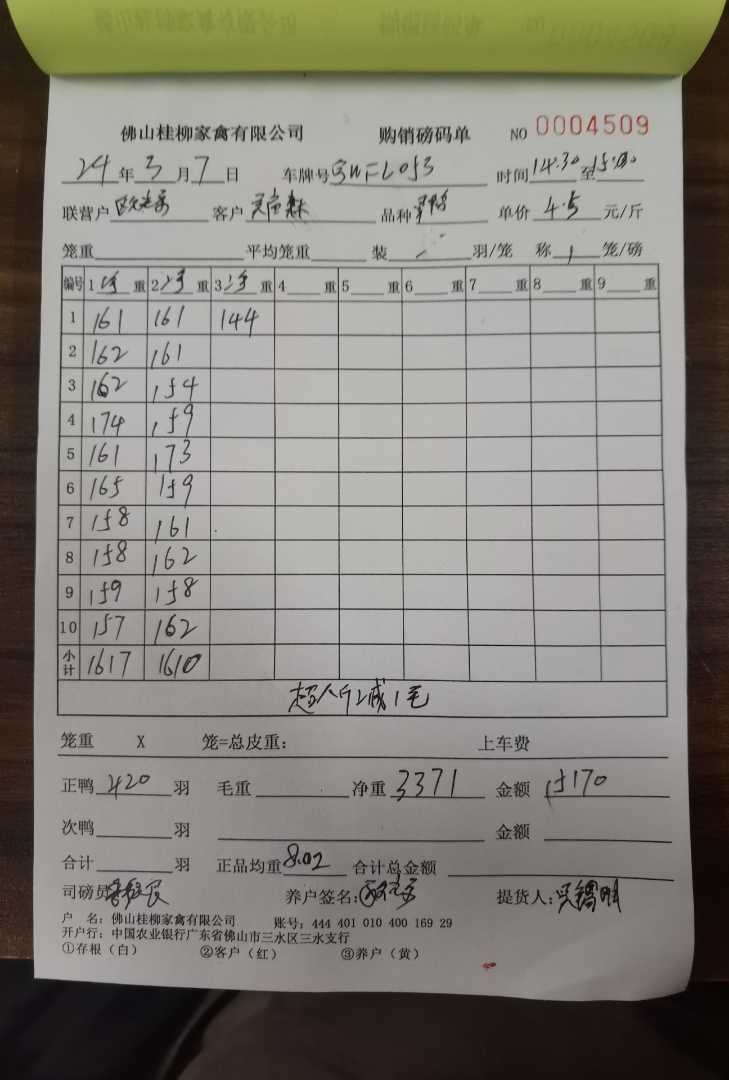 佛山桂柳家禽有限公司 购销磅码单 NO 0004509
24年3月7日 车牌号 时间14:30至15:00
联营户 客户 品种 单价4.5元/斤
笼重 平均笼重 装 羽/笼 称1笼/磅
编号 1净重 2净重 3净重 4重 5重 6重 7重 8重 9重
1 161 161 144
2 162 161
3 162 154
4 174 159
5 161 173
6 165 159
7 158 161
8 158 162
9 159 158
10 157 162
小计 1617 1610
超八斤减1毛
笼重 X 笼=总皮重: 上车费
正鸭420羽 毛重 净重3371 金额15170
次鸭 羽 金额
合计 羽 正品均重8.02 合计总金额
司磅员 养户签名: 提货人:
户 名:佛山桂柳家禽有限公司 账号:444 401 010 400 169 29
开户行:中国农业银行广东省佛山市三水区三水支行
①存根(白) ②客户(红) ③养户(黄)